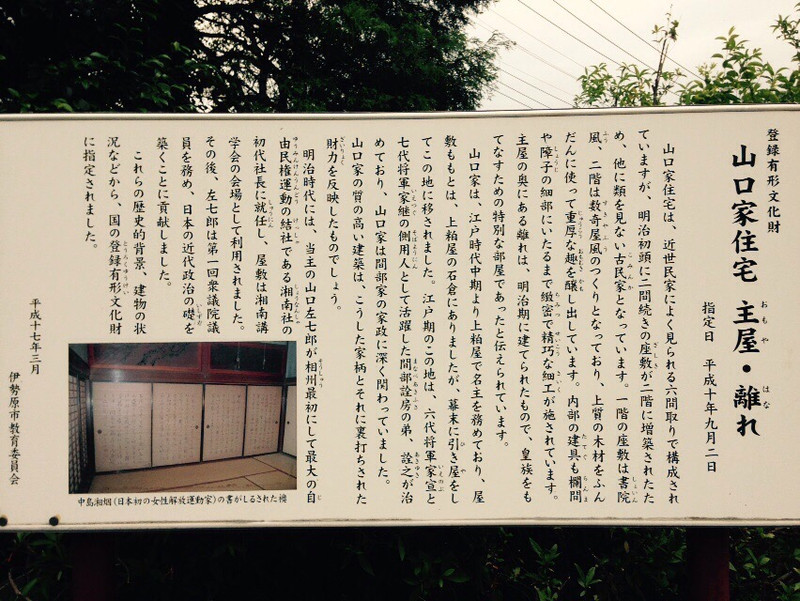 登録有形文化財
山口家住宅 主屋・離れ
おもや はな
指定日 平成十年九月二日
山口家住宅は、近世民家によく見られる六間取りで構成され
ていますが、明治初頭に二間続きの座敷が二階に増築されたた
め、他に類を見ない古民家となっています。一階の座敷は書院
風、二階は数寄屋風のつくりとなっており、上質の木材をふん
だんに使って重厚な趣を醸し出しています。内部の建具も欄間
や障子の細部にいたるまで緻密で精巧な細工が施されています。
主屋の奥にある離れは、明治期に建てられたもので、皇族をも
てなすための特別な部屋であったと伝えられています。
山口家は、江戸時代中期より上粕屋で名主を務めており、屋
敷ももとは、上粕屋の石倉にありましたが、幕末に引き屋をし
てこの地に移されました。江戸期のこの地は、六代将軍家宣と
七代将軍家継の側用人として活躍した間部詮房の弟、詮之が治
めており、山口家は間部家の家政に深く関わっていました。
山口家の質の高い建築は、こうした家柄とそれに裏打ちされた
財力を反映したものでしょう。
明治時代には、当主の山口左七郎が相州最初にして最大の自
由民権運動の結社である湘南社の
初代社長に就任し、屋敷は湘南講
学会の会場として利用されました。
その後、左七郎は第一回衆議院議
員を務め、日本の近代政治の礎を
築くことに貢献しました。
これらの歴史的背景、建物の状
況などから、国の登録有形文化財
に指定されました。
平成十七年三月
伊勢原市教育委員会
中島湘烟(日本初の女性解放運動家)の書がしるされた襖